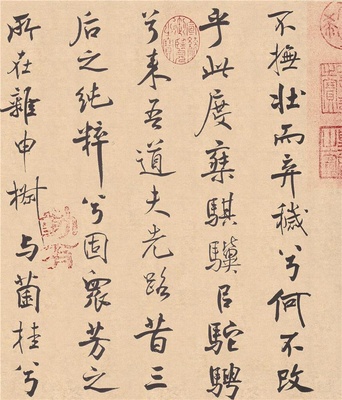 不撫壯而弃穢兮何不改
乎此度椉騏驥㠯駝騁
兮来吾道夫先路昔三
后之純粹兮固衆芳之
所在雜申樹与菌桂兮